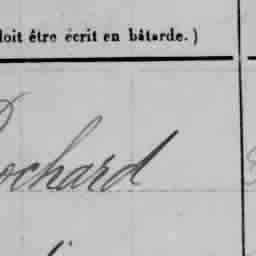 doit être écrit en bâtarde.)
Rochard